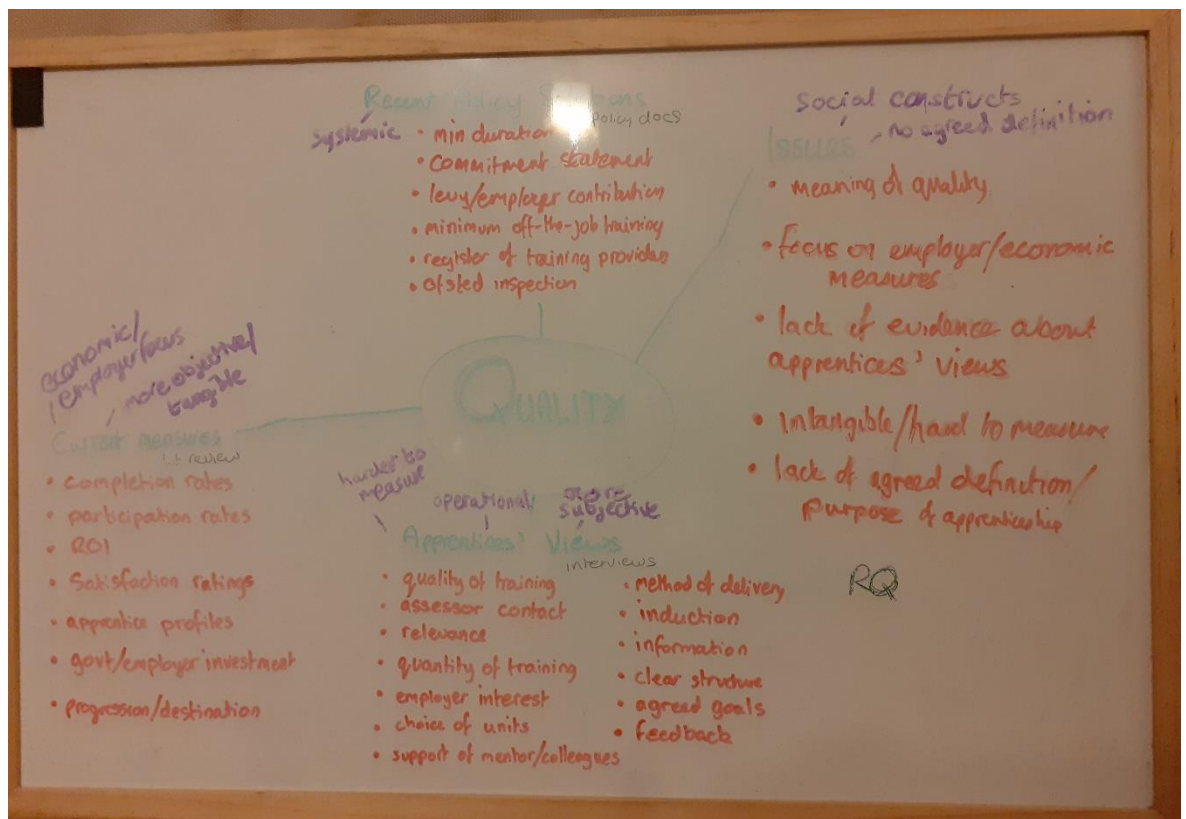 Recent Policy Solutions
policy docs
systemic
• min duration
• commitment statement
• levy/employer contribution
• minimum off-the-job training
• register of training providers
• Ofsted inspection
social constructs
no agreed definition
Issues
• meaning of quality
• focus on employer/economic
measures
• lack of evidence about
apprentices' views
• Intangible/hard to measure
• lack of agreed definition/
purpose of apprenticeship
RQ
QUALITY
economic/
employer focus
more objective/
tangible
Current measures
lit review
• completion rates
• participation rates
• ROI
• Satisfaction ratings
• apprentice profiles
• govt/employer investment
• progression/destination
harder to
measure
operational
more
subjective
Apprentices' Views
interviews
• quality of training
• assessor contact
• relevance
• quantity of training
• employer interest
• choice of units
• support of mentor/colleagues
• method of delivery
• induction
• information
• clear structure
• agreed goals
• feedback